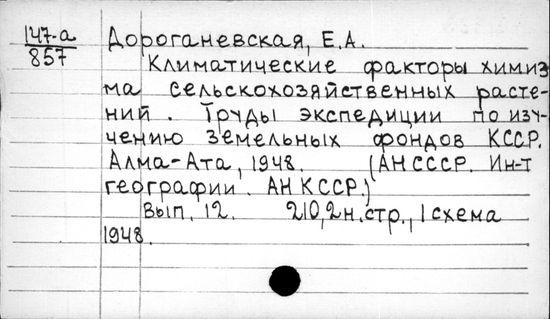 147-а
857
Дороганевская, Е.А.
Климатические факторы химиз
ма сельскохозяйственных расте-
ний. Труды экспедиции по изу-
чению земельных фондов КССР.
Алма-Ата, 1948. (АН СССР. Ин-т
географии. АН КССР.)
Вып. 12. 210,2 н.стр., 1 схема
1948.